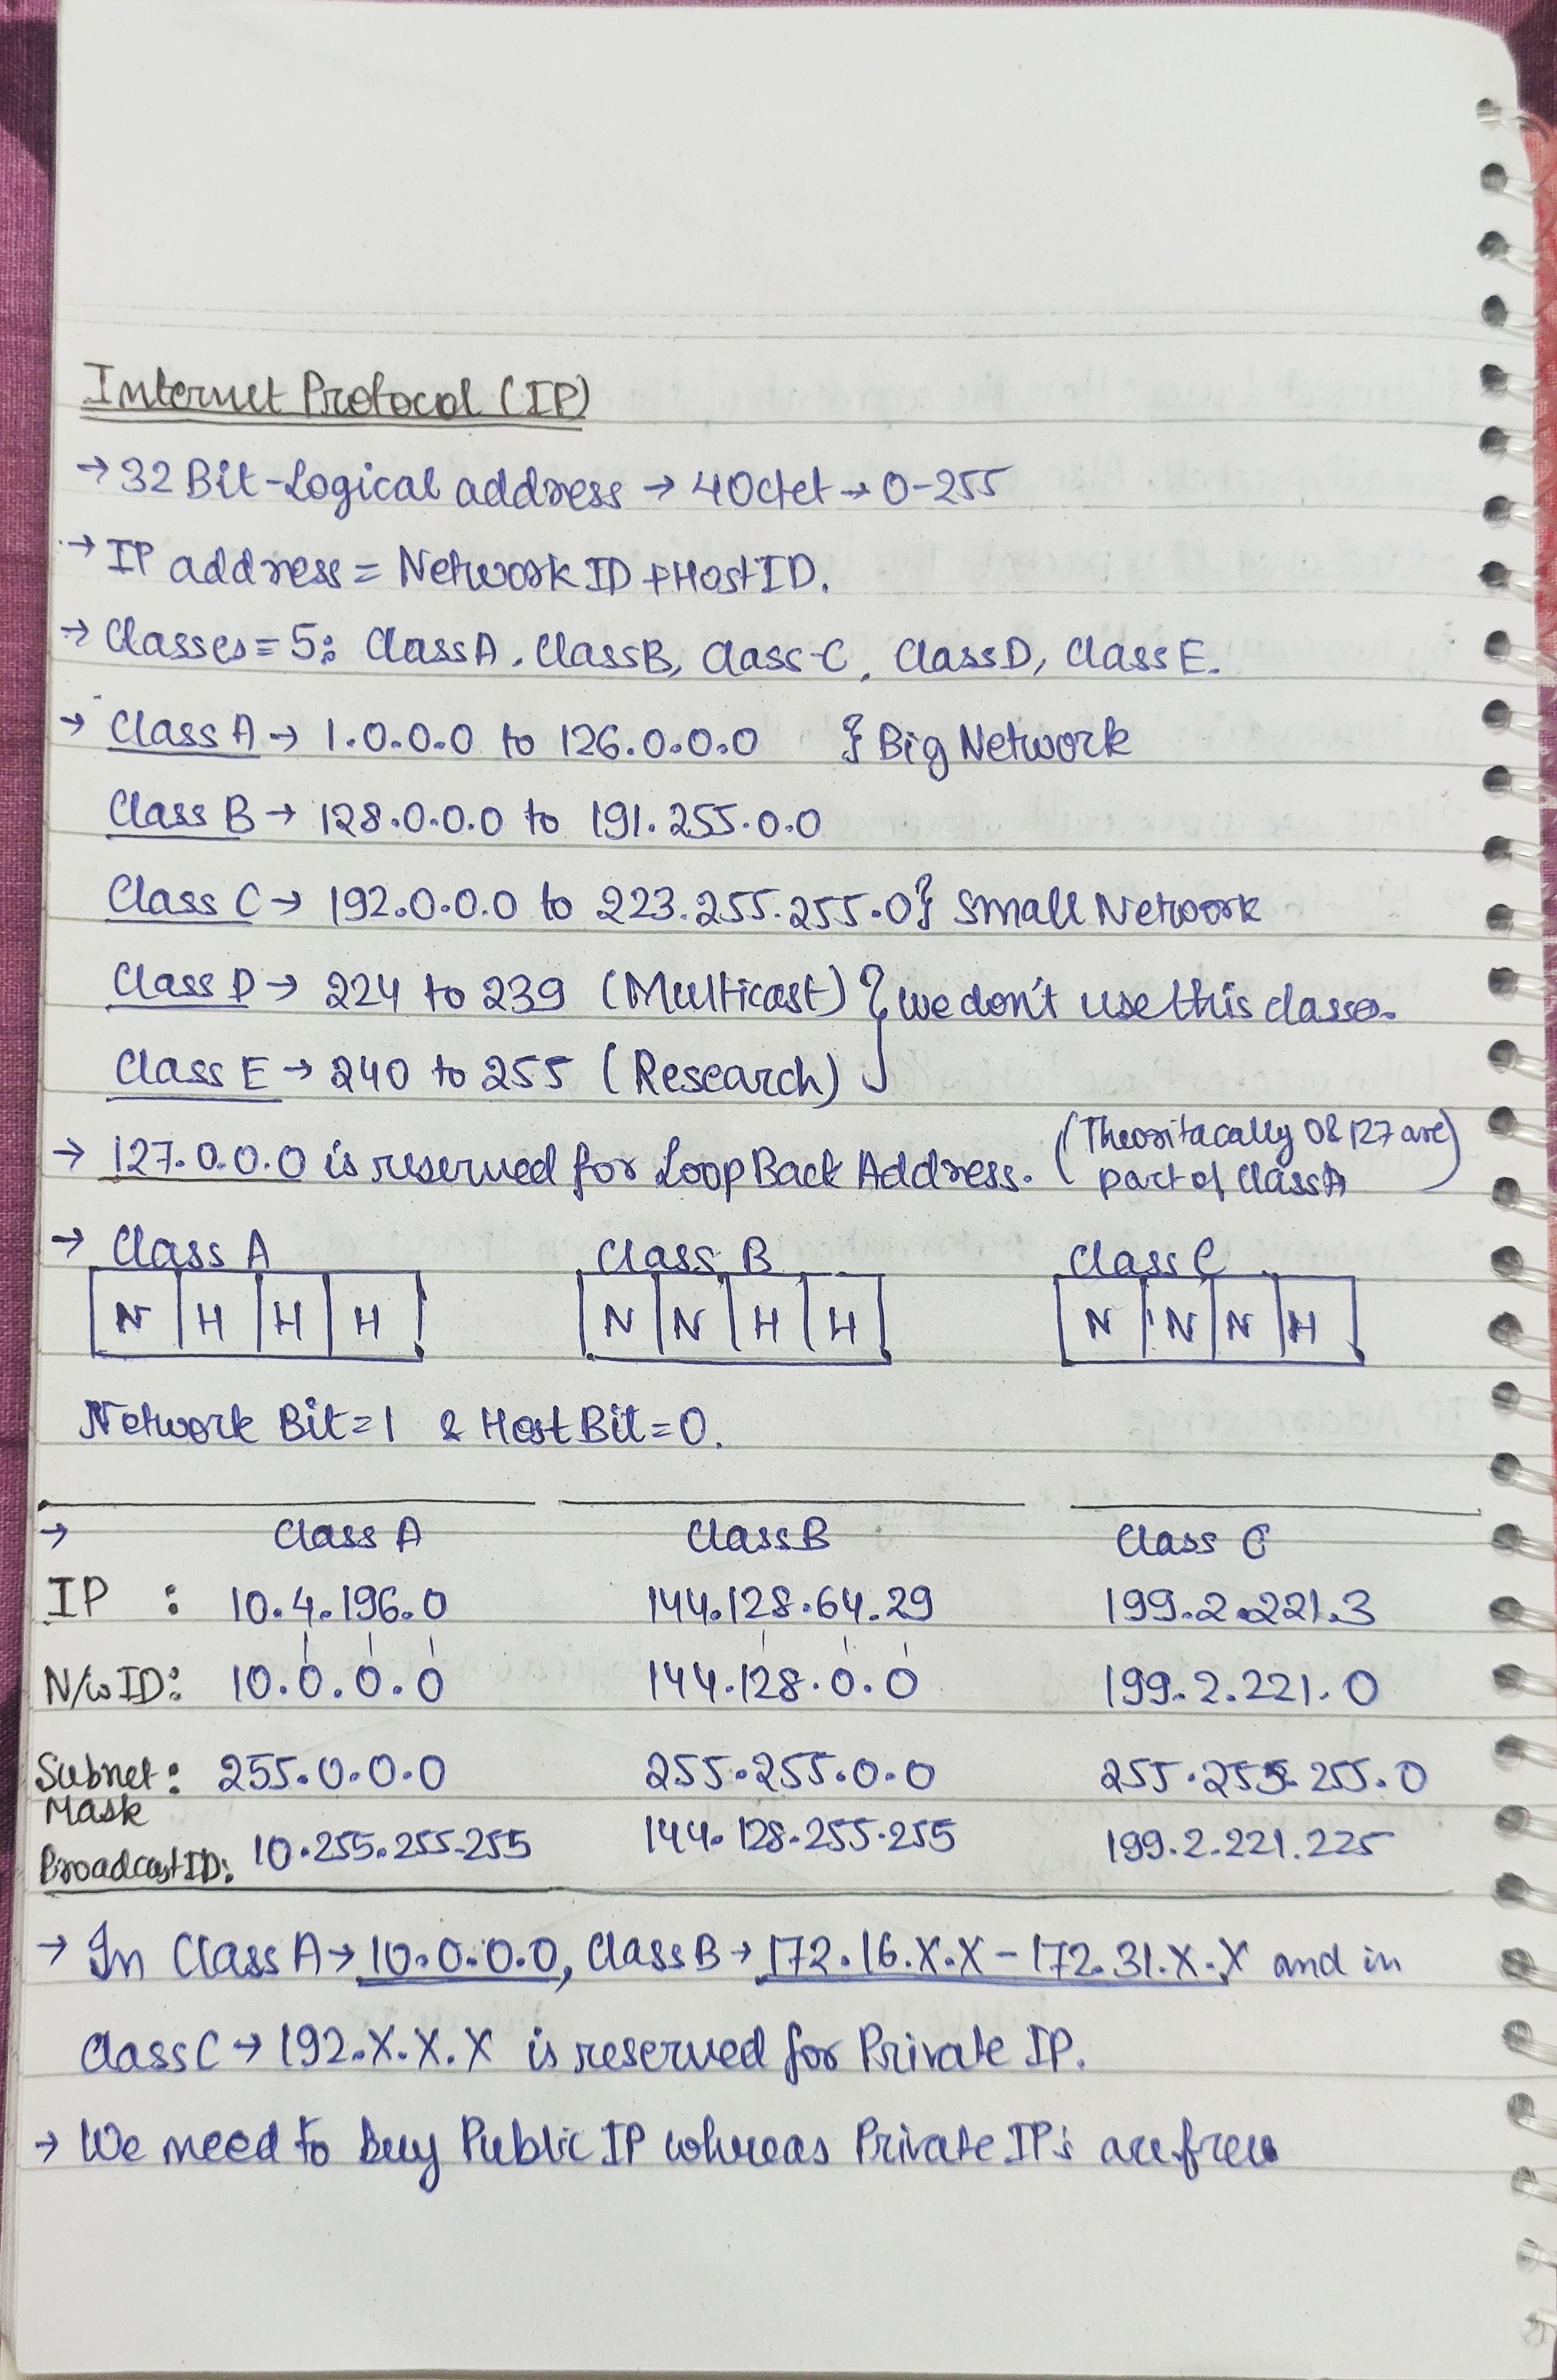 Internet Protocol (IP)
→ 32 Bit-Logical address → 4 Octet → 0-255
→ IP address = Network ID + Host ID.
→ Classes = 5: Class A, Class B, Class C, Class D, Class E.
→ Class A → 1.0.0.0 to 126.0.0.0 } Big Network
Class B → 128.0.0.0 to 191.255.0.0
Class C → 192.0.0.0 to 223.255.255.0 } Small Network
Class D → 224 to 239 (Multicast) } we don't use this classes.
Class E → 240 to 255 (Research)
→ 127.0.0.0 is reserved for Loop Back Address. (Theoritacally 0 & 127 are part of Class A)
→ Class A Class B Class C
N H H H N N H H N N N H
Network Bit = 1 & Host Bit = 0.
→ Class A Class B Class C
IP : 10.4.196.0 144.128.64.29 199.2.221.3
N/w ID: 10.0.0.0 144.128.0.0 199.2.221.0
Subnet Mask : 255.0.0.0 255.255.0.0 255.255.255.0
Broadcast ID: 10.255.255.255 144.128.255.255 199.2.221.225
→ In Class A → 10.0.0.0, Class B → 172.16.X.X - 172.31.X.X and in
Class C → 192.X.X.X is reserved for Private IP.
→ We need to buy Public IP whereas Private IPs are free